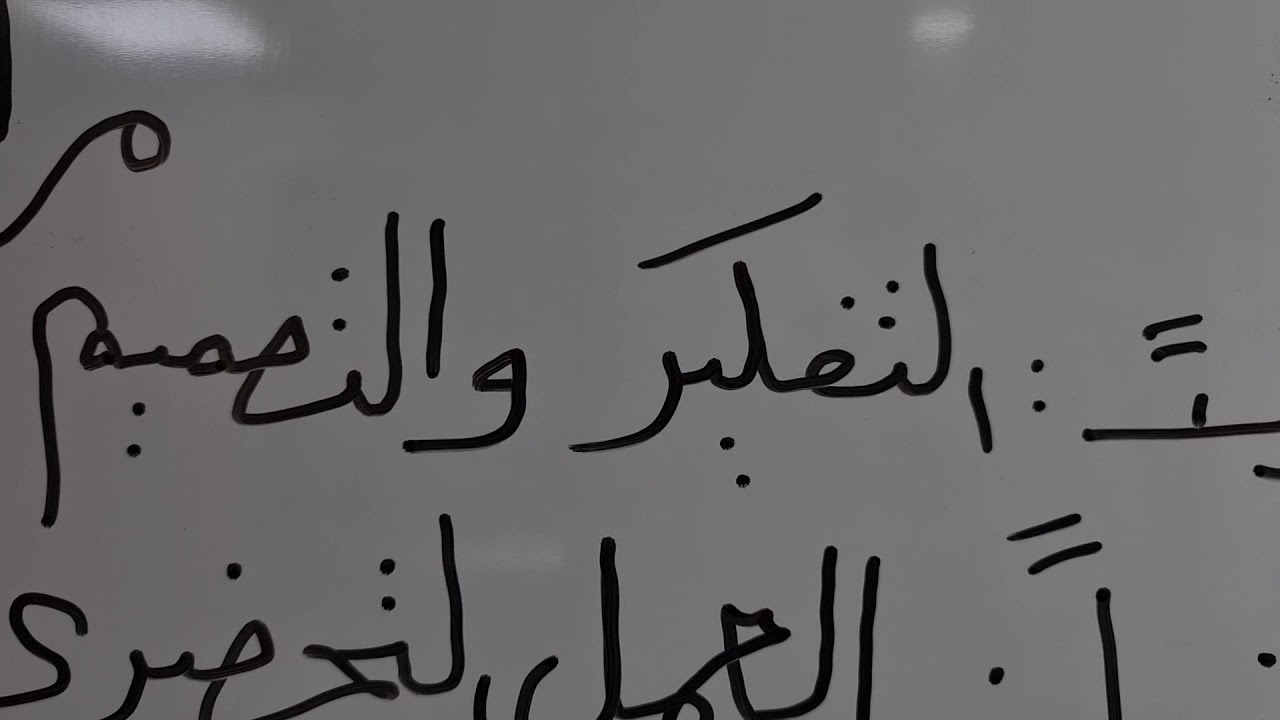 : التفكير والتصميم
العمل التحضيرى